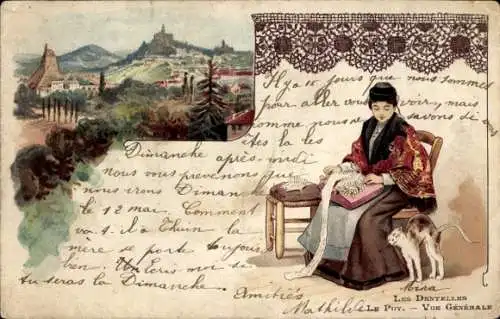 Il y a 15 jours que nous sommes
pour aller vous voir, mais
comme nous savons
êtes la les
Dimanche après-midi
nous vous prévenons que
nous irons Dimanche
le 12 mai. Comment
va t. il à la
mère se porte toujours
bien. Un mot si
tu seras la Dimanche.
Amitiés
Mathilde
LES DENTELLES
LE PUY. – VUE GÉNÉRALE